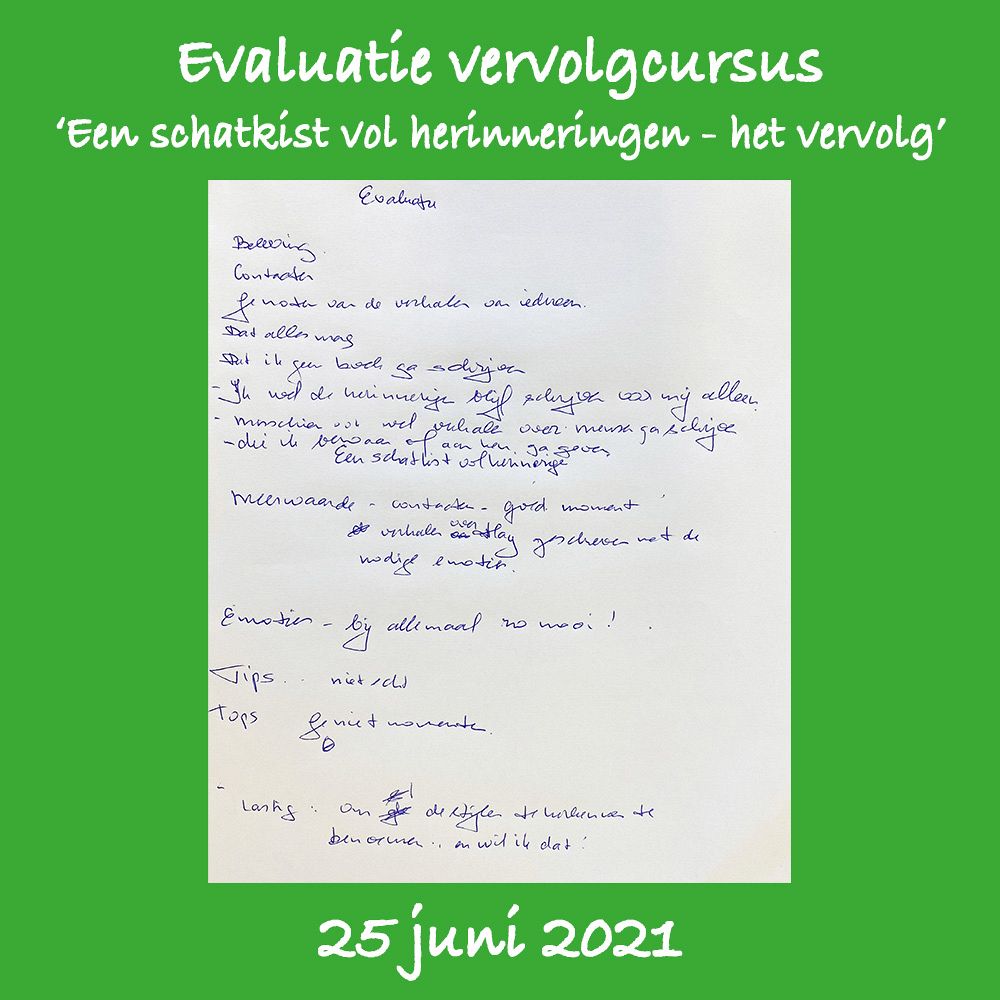 Evaluatie vervolgcursus
‘Een schatkist vol herinneringen - het vervolg’
Evaluatie
Beleving.
Contacten
Genoten van de verhalen van iedereen.
Dat alles mag
Dat ik geen boek ga schrijven
- Ik wel de herinneringe blijf schrijven voor mij alleen
- misschien ook wel verhalen over mensen ga schrijven
- die ik bewaar of aan hen ga geven
Een schatkist vol herinnerige
Meerwaarde - contacten - goed moment
verhalen over geschreven met de
nodige emoties.
Emoties - bij allemaal zo mooi!
Tips.. niet echt
Tops geniet momenten.
- Lastig: om de stijlen te herkennen te
benoemen.. en wil ik dat!
25 juni 2021